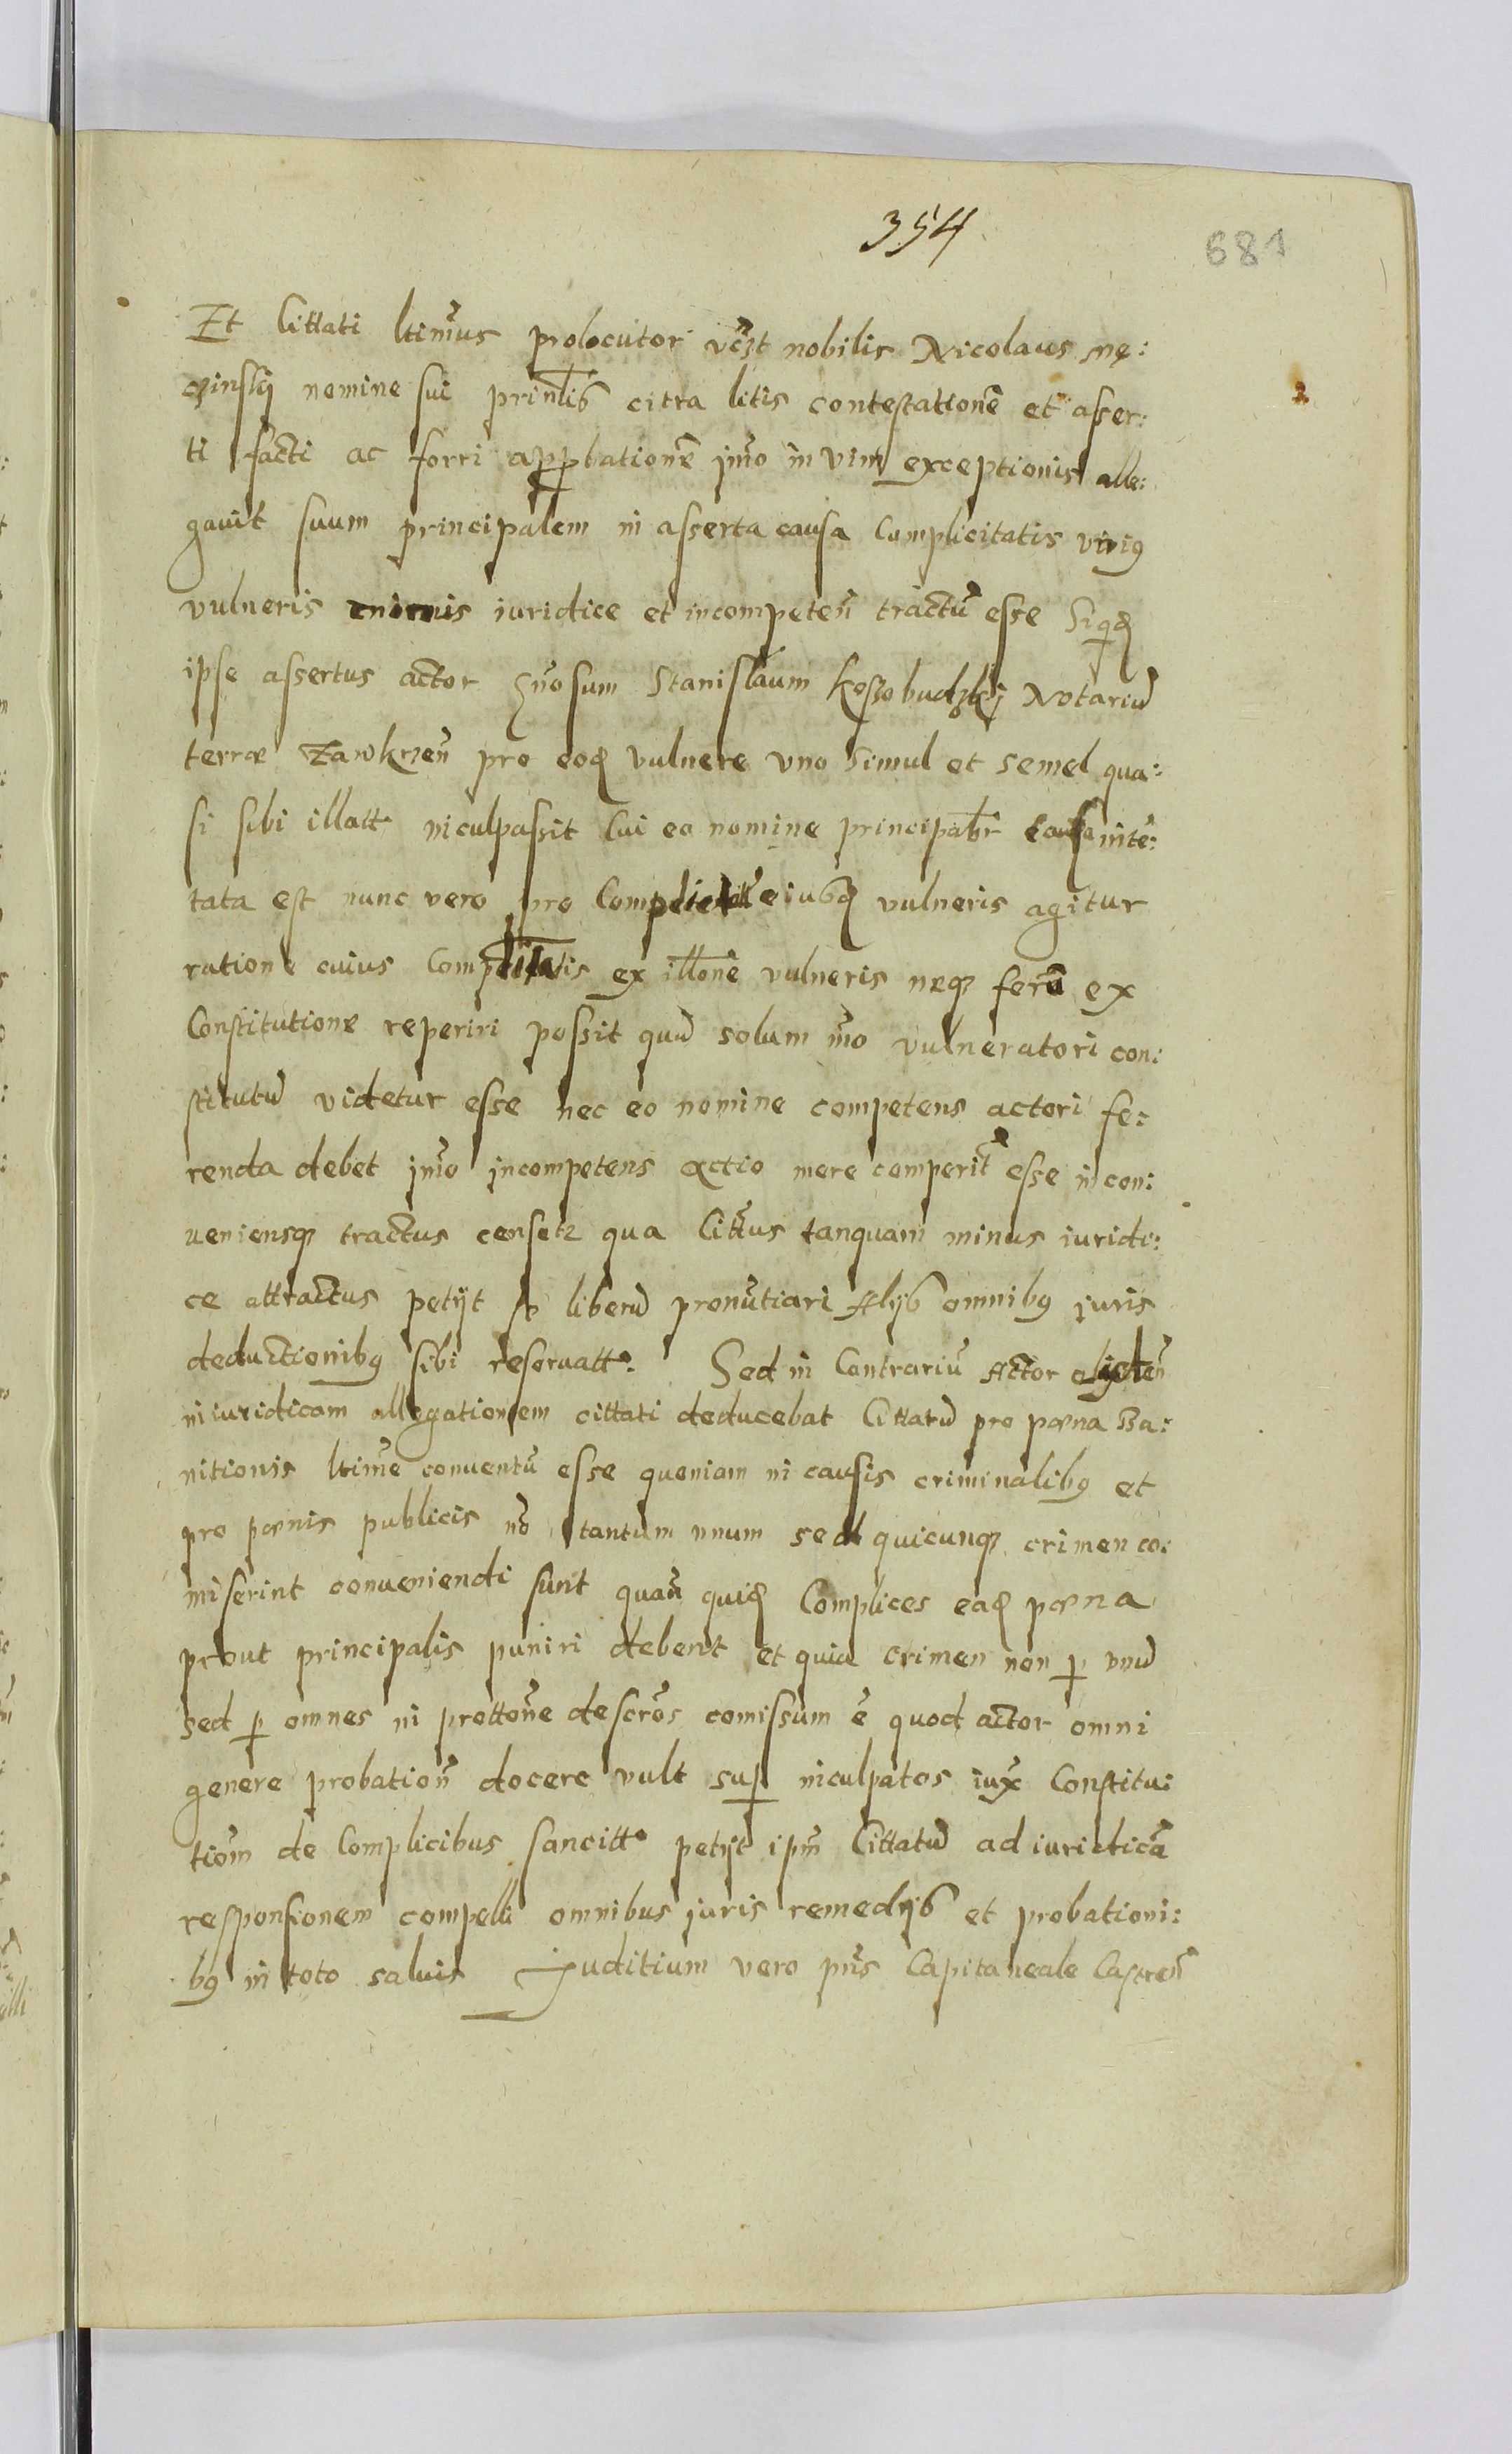 354
681
Et Cittati ltimus prolocutor vczt nobilis Nicolaus Mę:
czinsky nomine sui prinlis citra litis contestationē et asser:
ti facti ac forri approbationē imo in vim exceptionis alle:
gavit suum principalem in asserta causa Complicitatis
vulneris iuridice et incompeten tractū esse Siqd
ipse assertus actor Gnosum Stanislaum Koszobudzky Notariū
terræ Zawkrzen pro eod vulnere uno simul et semel qua:
si sibi illatt inculpassit Cui eo nomine principalr causa intē:
tata est nunc vero pro eiusd vulneris agitur
ratione cuius Complitatis ex illone vulneris neqz ferū ex
Constitutione reperiri possit quū solum mō vulneratori con:
stitutū videtur esse nec eo nomine competens actori fe:
renda debet imo incompetens actio mere comperit esse incon:
ueniensqz tractus censetr qua Cittus tanquam minus iuridi:
ce attractus petyt se liberū pronūtiari Alys omnibq iuris
deductionibq sibi reservatt. Sed in Contrariū Actor
iniuridicam allegationem cittati deducebat Cittatū pro pœna Ba:
nitionis ltime conventū esse quoniam in causis criminalibq et
pro pœnis publicis nō tantum unum sed quicunqz crimen co:
miserint conueniendi sunt quān quid Complices ead pœna
prout principalis puniri debent et quia crimen non p unū
sed p omnes in prottone descros comissum ē quod actor omni
genere probation docere vult sup inculpatos iux Constitu:
tiom de Complicibus sancitt petyt ipm Cittatū ad iuridicā
responsionem compelli omnibus juris remedys et probationi:
bq in toto salvis Juditium vero pns Capitaneale Castren